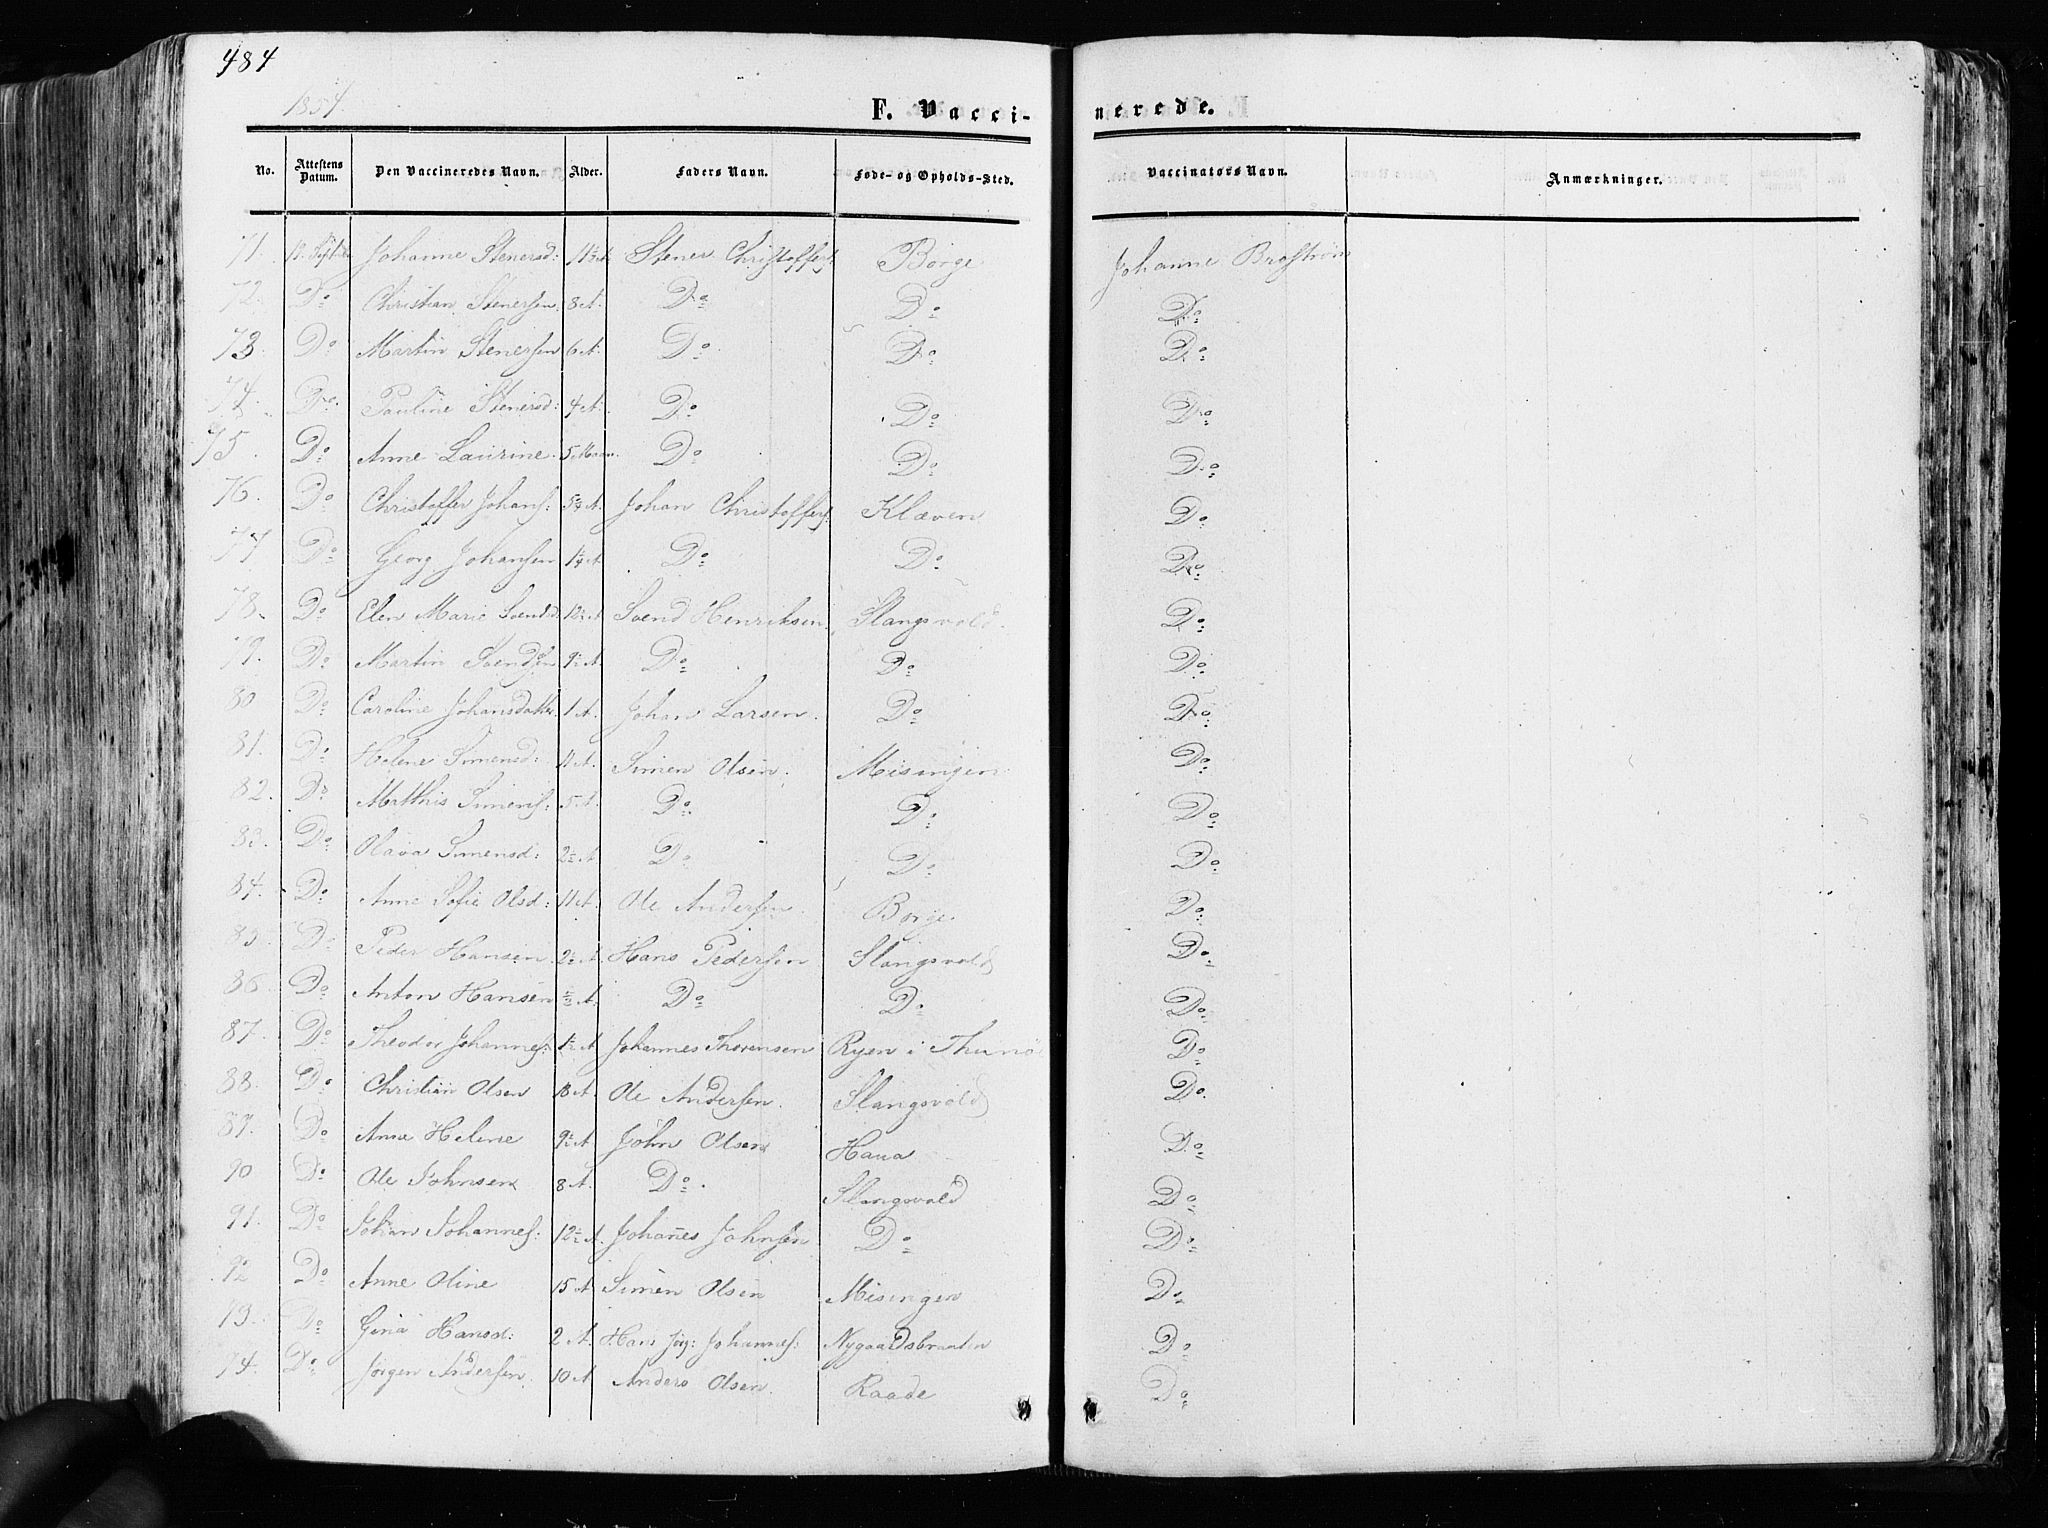 484
1854
F. Vaccinerede.
No. Attestens Datum. Den Vaccineredes Navn. Alder. Faders Navn. Føde- og Opholds-Sted. Vaccinators Navn. Anmærkninger.
71. Johanne Stenersd: 11½ A. Stener Christoffers: Borge Johanne Brostrøm
72. Do Christian Stenersen 8 A. Do Do Do
73. Do Martin Stenersen 6 A. Do Do Do
74. Do Pauline Stenersd: 4 A. Do Do Do
75. Do Anne Laurine 5 Maan. Do Do Do
76. Do Christoffer Johans: A. Johan Christoffers: Klæven Do
77 Do Georg Johansen 1¼ A Do Do Do
78. Do Elen Marie Svendsd 12½ A Svend Henriksen Slangsvold Do
79. Do Martin Svendsen 9½ A. Do Do Do
80 Do Caroline Johansdatter 1 A. Johan Larsen. Do Do
81. Do Helene Simensd: 11 A. Simen Olsen. Misingen Do
82. Do Matthis Simens: 5 A. Do Do Do
83. Do Olava Simensd: 2½ A Do Do Do
84. Do Anne Sofie Olsd: 11 A. Ole Andersen. Borge Do
85. Do Peder Hansen 2½ A. Hans Pedersen Slangsvold Do
86. Do Anton Hansen ½ A. Do Do Do
87. Do Theodor Johannes: 1½ A Johannes Thorensen Ryen i Thunø Do
88. Do Christian Olsen 13 A. Ole Andersen. Slangsvold Do
89. Do Anne Helene 9½ A John Olsen Haua Do
90 Do Ole Johnsen 8 A. Do Slangsvold Do
91. Do Johan Johannes: 12½ A. Johan̄es Johnsen Do Do
92 Do Anne Oline 15 A Simen Olsen Misingen Do
93. Do Gina Hansd: 2 A. Hans Jørg: Johannes: Nygaardsbraaten Do
94. Do Jørgen Andersen 10 A. Anders Olsen. Raade Do